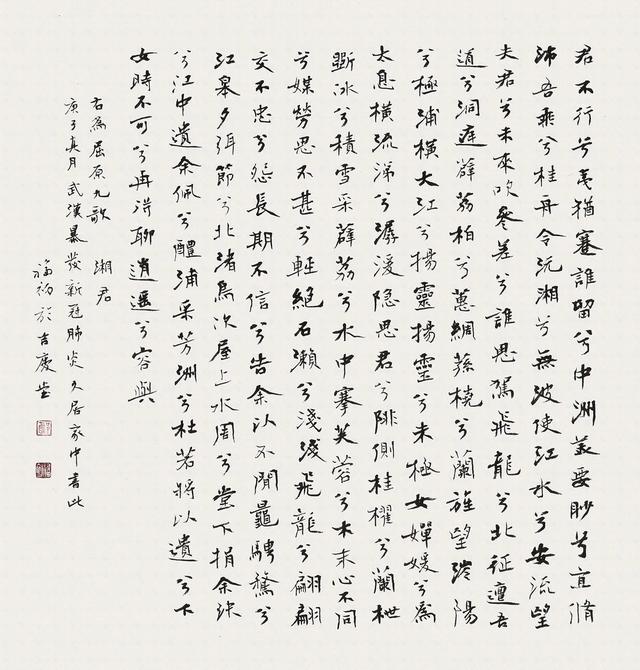 君不行兮夷猶蹇誰留兮中洲美要眇兮宜脩
沛吾乘兮桂舟令沅湘兮無波使江水兮安流望
夫君兮未來吹參差兮誰思駕飛龍兮北征邅吾
道兮洞庭薜荔柏兮蕙綢蓀橈兮蘭旌望涔陽
兮極浦橫大江兮揚靈揚靈兮未極女嬋媛兮為
太息橫流涕兮潺湲隐思君兮陫側桂櫂兮蘭枻
斲冰兮積雪采薜荔兮水中搴芙蓉兮木末心不同
兮媒勞恩不甚兮輕絕石瀨兮淺淺飛龍兮翩翩
交不忠兮怨長期不信兮告余以不閒鼂騁騖兮
江皋夕弭節兮北渚鳥次屋上水周兮堂下捐余玦
兮江中遺余佩兮醴浦采芳洲兮杜若將以遺兮下
女時不可兮再得聊逍遙兮容與
右為屈原九歌 湘君
庚子真月武漢暴發新冠肺炎久居家中書此
福初於吉慶堂